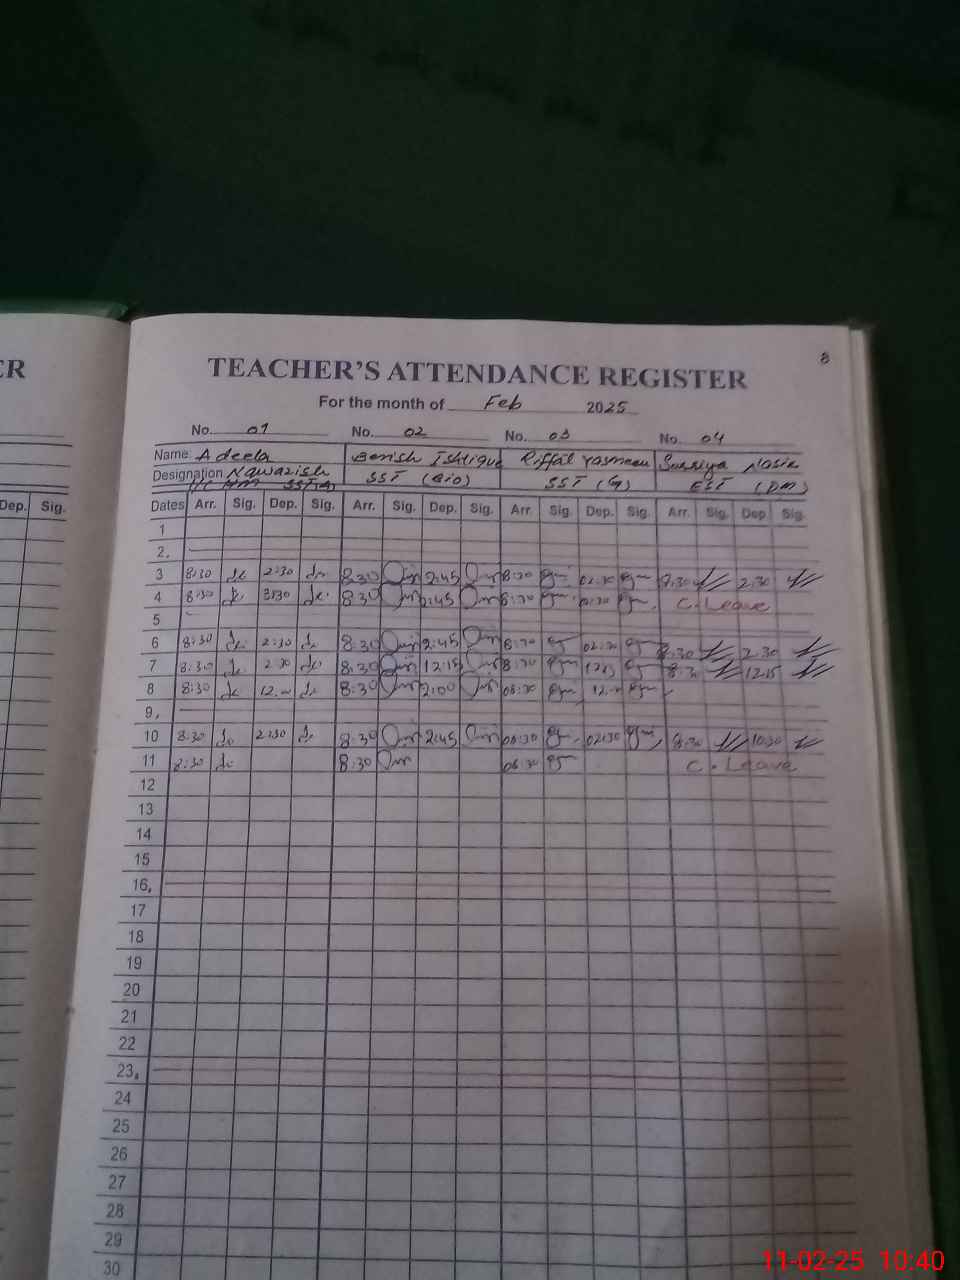 ER
8
TEACHER'S ATTENDANCE REGISTER
For the month of Feb 2025
No. 01 No. 02 No. 03 No. 04
Name: Adeela Benish Ishtique Riffat Yasmeen Surriya Nasir
Designation Nawazish SST (Bio) SST (G) EST (DM)
Dep. Sig. Dates Arr. Sig. Dep. Sig. Arr. Sig. Dep. Sig. Arr. Sig. Dep. Sig. Arr. Sig. Dep Sig.
1
2.
3 8:30 2:30 8:30 2:45 8:30 02:30 2:30
4 8:30 3:30 8:30 2:45 8:30 C. Leave
5
6 8:30 2:30 8:30 2:45 8:30 8:30 2:30
7 8:30 2:30 8:30 12:15 8:30 12:15
8 8:30 8:30 2:00 08:30
9.
10 8:30 2:30 8:30 2:45 08:30 02:30 8:30 10:30
11 8:30 8:30 08:30 C. Leave
12
13
14
15
16.
17
18
19
20
21
22
23.
24
25
26
27
28
29
30
11-02-25 10:40